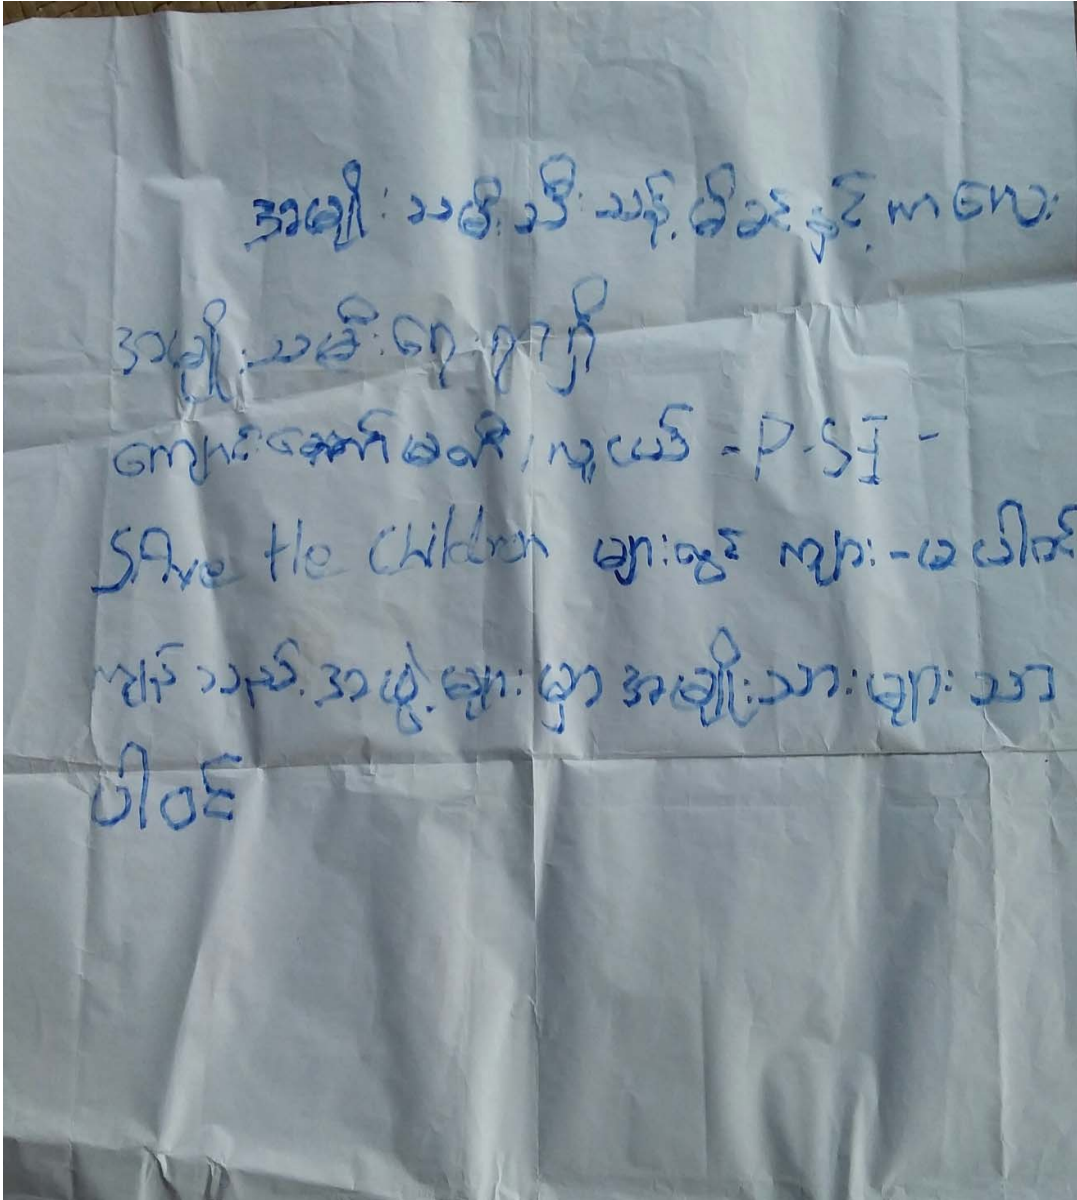 အမျိုးသမီးသီးသန့်မိခင်နှင့်ကလေး
အမျိုးသမီးရေးရာရှိ
ကျောင်းတော်မတီ၊ လူငယ် - P.SI -
SAve tHe Children များတွင် ကျား - မ ပါဝင်
ကျန်သည့်အဖွဲ့များမှာ အမျိုးသားများသာ
ပါဝင်